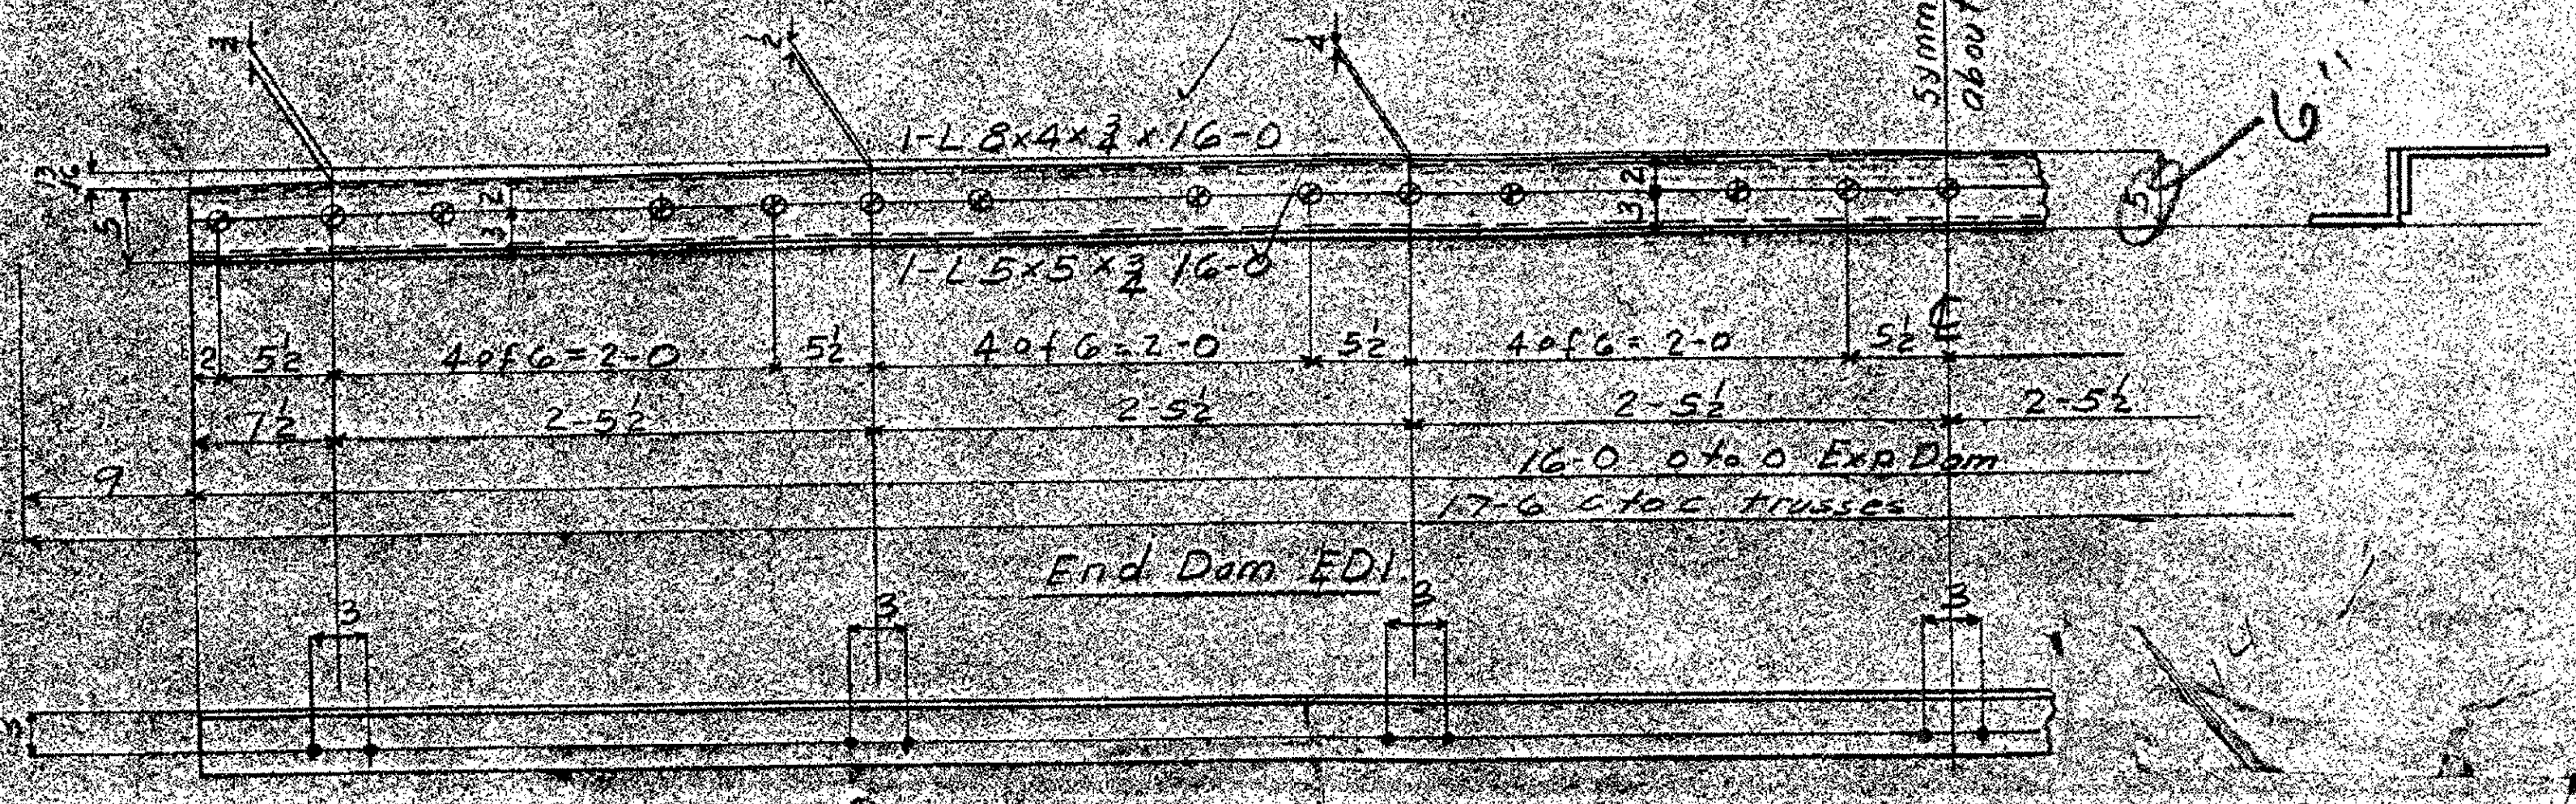 symm
about
℄
1/2
1/4
1-L 8x4x3/4 x 16-0
6"
13/16
5
2
3
2
3
5
1-L 5x5x3/4 16-0
2 5 1/2 4 of 6=2-0 5 1/2 4 of 6=2-0 5 1/2 4 of 6=2-0 5 1/2
7 1/2 2-5 1/2 2-5 1/2 2-5 1/2 2-5 1/2
9 16-0 o to o Exp Dam
17-6 c to c trusses
End Dam ED1.
3 3 3 3
3